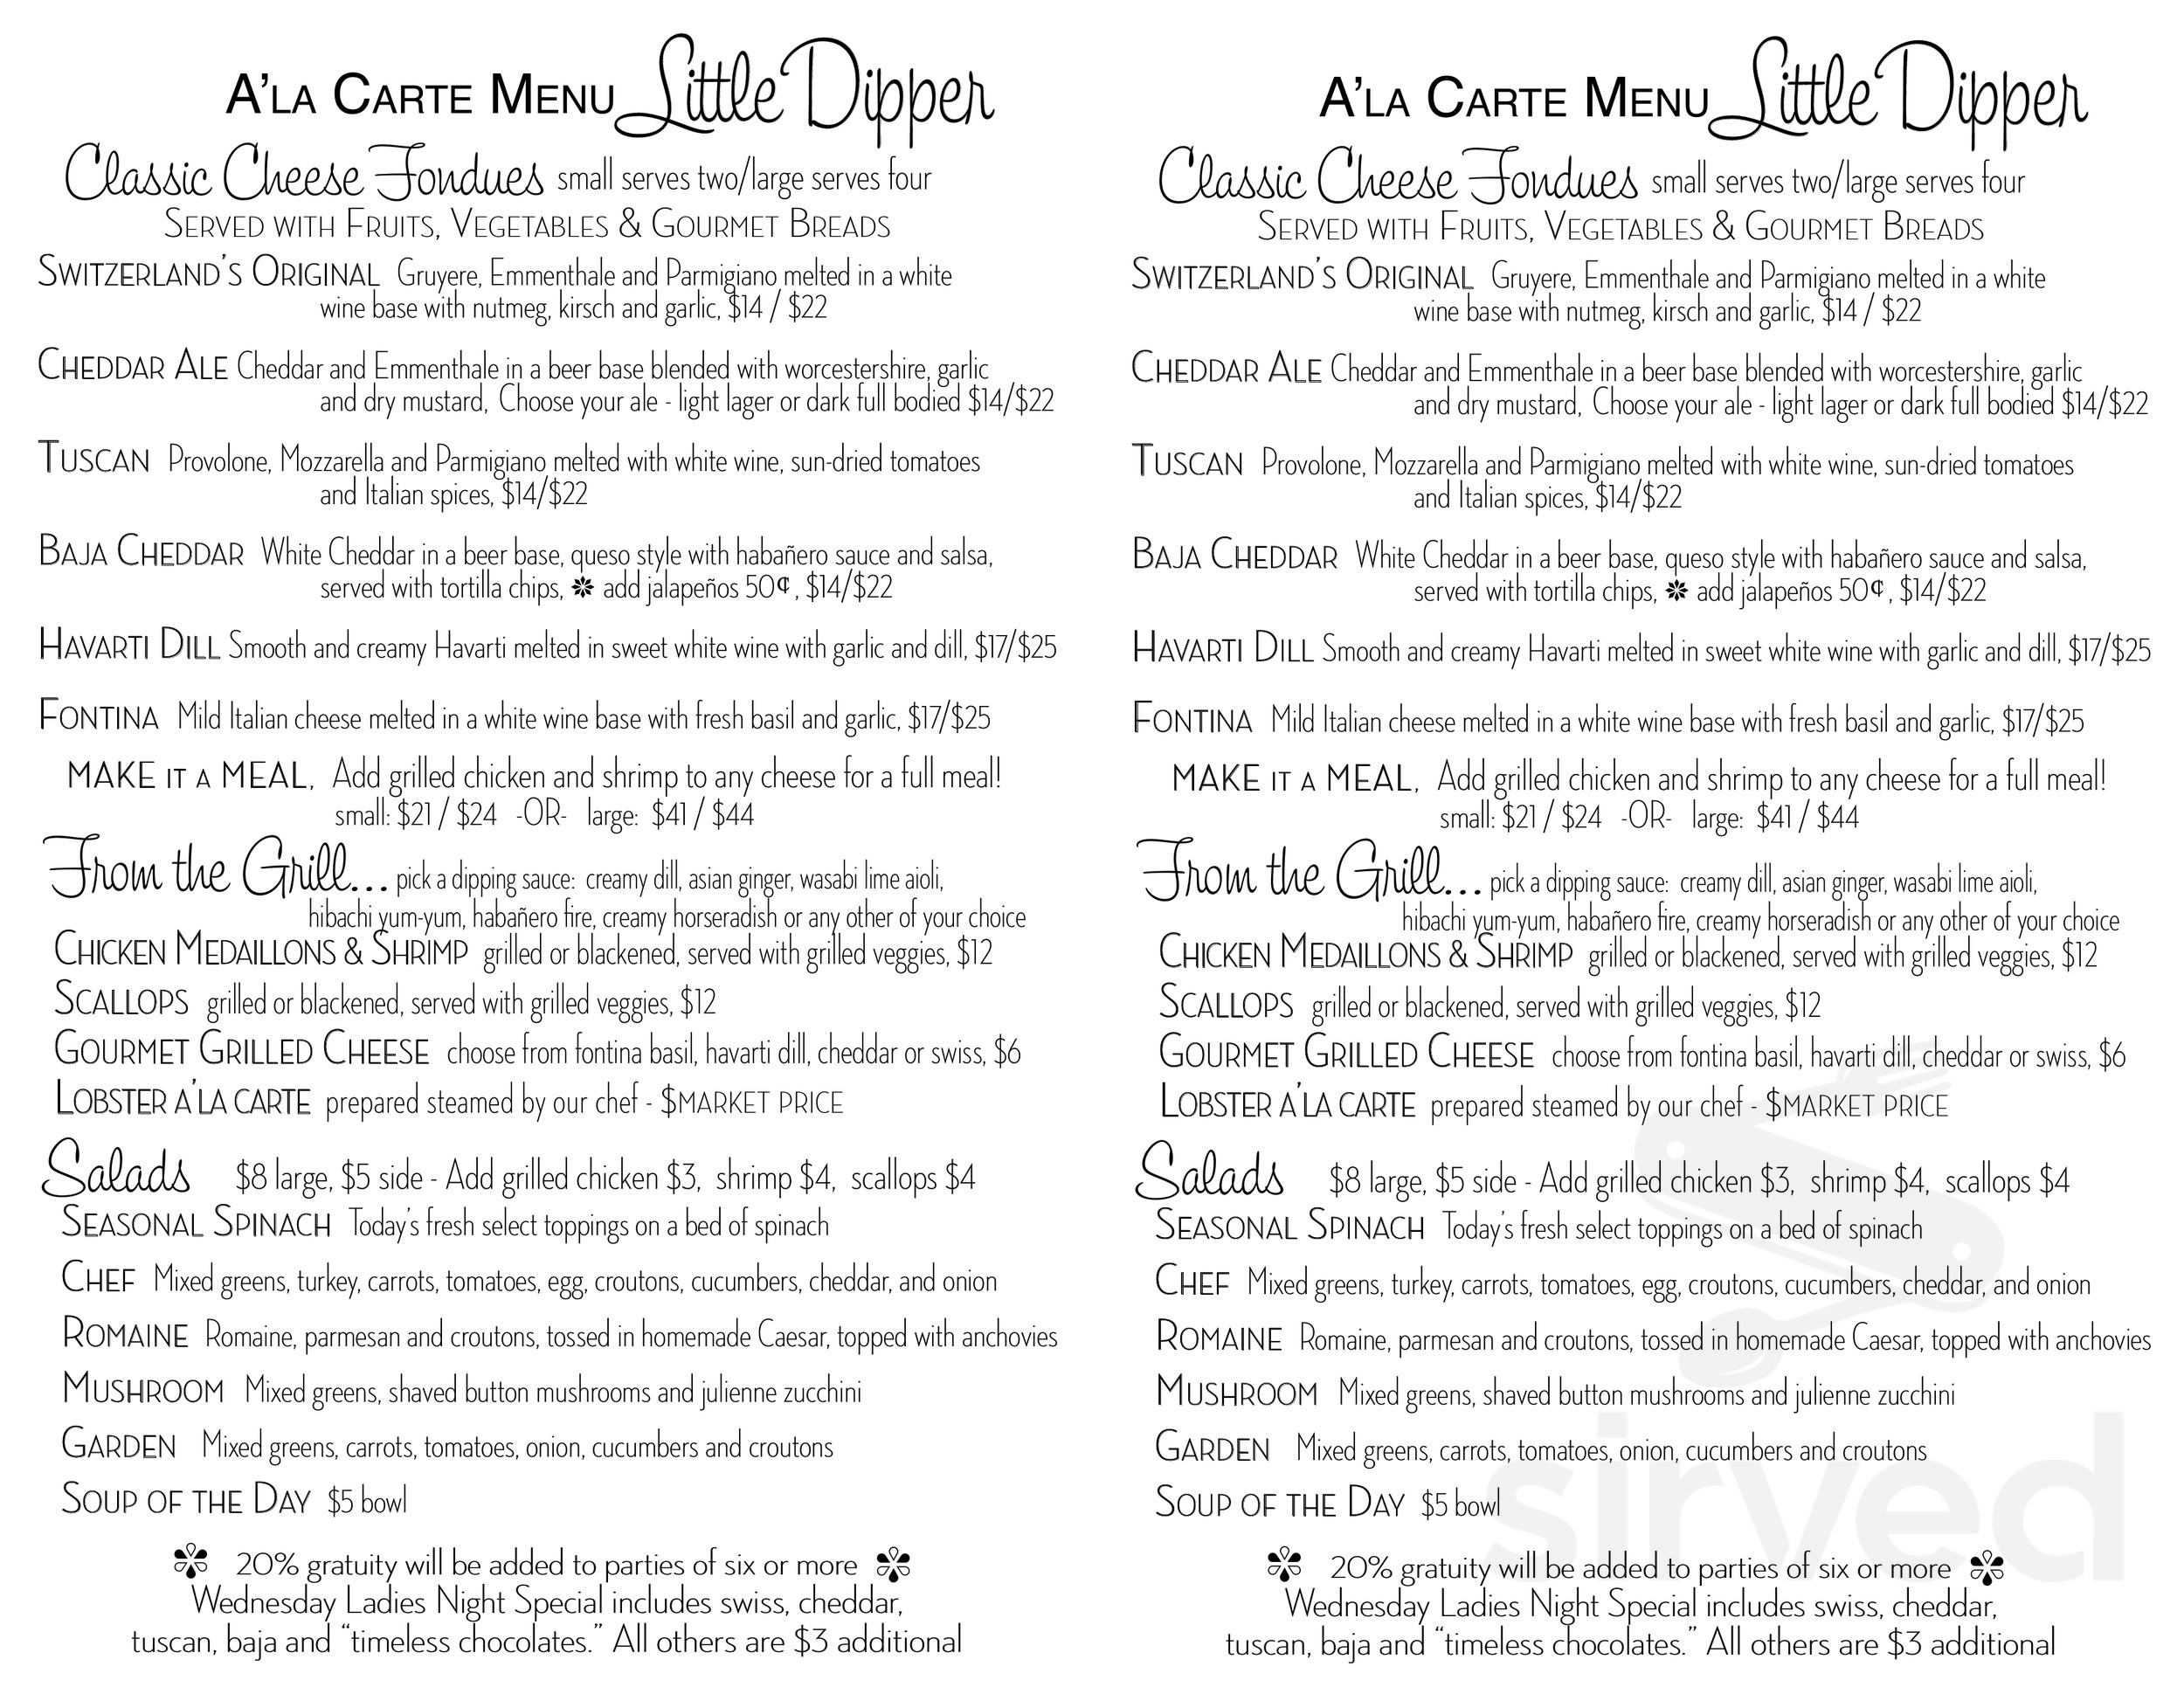 A'LA CARTE MENU Little Dipper
Classic Cheese Fondues small serves two/large serves four
SERVED WITH FRUITS, VEGETABLES & GOURMET BREADS
SWITZERLAND'S ORIGINAL Gruyere, Emmenthale and Parmigiano melted in a white
wine base with nutmeg, kirsch and garlic, $14 / $22
CHEDDAR ALE Cheddar and Emmenthale in a beer base blended with worcestershire, garlic
and dry mustard, Choose your ale - light lager or dark full bodied $14/$22
TUSCAN Provolone, Mozzarella and Parmigiano melted with white wine, sun-dried tomatoes
and Italian spices, $14/$22
BAJA CHEDDAR White Cheddar in a beer base, queso style with habañero sauce and salsa,
served with tortilla chips, ✽ add jalapeños 50¢, $14/$22
HAVARTI DILL Smooth and creamy Havarti melted in sweet white wine with garlic and dill, $17/$25
FONTINA Mild Italian cheese melted in a white wine base with fresh basil and garlic, $17/$25
MAKE IT A MEAL, Add grilled chicken and shrimp to any cheese for a full meal!
small: $21 / $24 -OR- large: $41 / $44
From the Grill... pick a dipping sauce: creamy dill, asian ginger, wasabi lime aioli,
hibachi yum-yum, habañero fire, creamy horseradish or any other of your choice
CHICKEN MEDAILLONS & SHRIMP grilled or blackened, served with grilled veggies, $12
SCALLOPS grilled or blackened, served with grilled veggies, $12
GOURMET GRILLED CHEESE choose from fontina basil, havarti dill, cheddar or swiss, $6
LOBSTER A'LA CARTE prepared steamed by our chef - $MARKET PRICE
Salads $8 large, $5 side - Add grilled chicken $3, shrimp $4, scallops $4
SEASONAL SPINACH Today's fresh select toppings on a bed of spinach
CHEF Mixed greens, turkey, carrots, tomatoes, egg, croutons, cucumbers, cheddar, and onion
ROMAINE Romaine, parmesan and croutons, tossed in homemade Caesar, topped with anchovies
MUSHROOM Mixed greens, shaved button mushrooms and julienne zucchini
GARDEN Mixed greens, carrots, tomatoes, onion, cucumbers and croutons
SOUP OF THE DAY $5 bowl
✽ 20% gratuity will be added to parties of six or more ✽
Wednesday Ladies Night Special includes swiss, cheddar,
tuscan, baja and “timeless chocolates.” All others are $3 additional
A'LA CARTE MENU Little Dipper
Classic Cheese Fondues small serves two/large serves four
SERVED WITH FRUITS, VEGETABLES & GOURMET BREADS
SWITZERLAND'S ORIGINAL Gruyere, Emmenthale and Parmigiano melted in a white
wine base with nutmeg, kirsch and garlic, $14 / $22
CHEDDAR ALE Cheddar and Emmenthale in a beer base blended with worcestershire, garlic
and dry mustard, Choose your ale - light lager or dark full bodied $14/$22
TUSCAN Provolone, Mozzarella and Parmigiano melted with white wine, sun-dried tomatoes
and Italian spices, $14/$22
BAJA CHEDDAR White Cheddar in a beer base, queso style with habañero sauce and salsa,
served with tortilla chips, ✽ add jalapeños 50¢, $14/$22
HAVARTI DILL Smooth and creamy Havarti melted in sweet white wine with garlic and dill, $17/$25
FONTINA Mild Italian cheese melted in a white wine base with fresh basil and garlic, $17/$25
MAKE IT A MEAL, Add grilled chicken and shrimp to any cheese for a full meal!
small: $21 / $24 -OR- large: $41 / $44
From the Grill... pick a dipping sauce: creamy dill, asian ginger, wasabi lime aioli,
hibachi yum-yum, habañero fire, creamy horseradish or any other of your choice
CHICKEN MEDAILLONS & SHRIMP grilled or blackened, served with grilled veggies, $12
SCALLOPS grilled or blackened, served with grilled veggies, $12
GOURMET GRILLED CHEESE choose from fontina basil, havarti dill, cheddar or swiss, $6
LOBSTER A'LA CARTE prepared steamed by our chef - $MARKET PRICE
Salads $8 large, $5 side - Add grilled chicken $3, shrimp $4, scallops $4
SEASONAL SPINACH Today's fresh select toppings on a bed of spinach
CHEF Mixed greens, turkey, carrots, tomatoes, egg, croutons, cucumbers, cheddar, and onion
ROMAINE Romaine, parmesan and croutons, tossed in homemade Caesar, topped with anchovies
MUSHROOM Mixed greens, shaved button mushrooms and julienne zucchini
GARDEN Mixed greens, carrots, tomatoes, onion, cucumbers and croutons
SOUP OF THE DAY $5 bowl
✽ 20% gratuity will be added to parties of six or more ✽
Wednesday Ladies Night Special includes swiss, cheddar,
tuscan, baja and “timeless chocolates.” All others are $3 additional
sirved